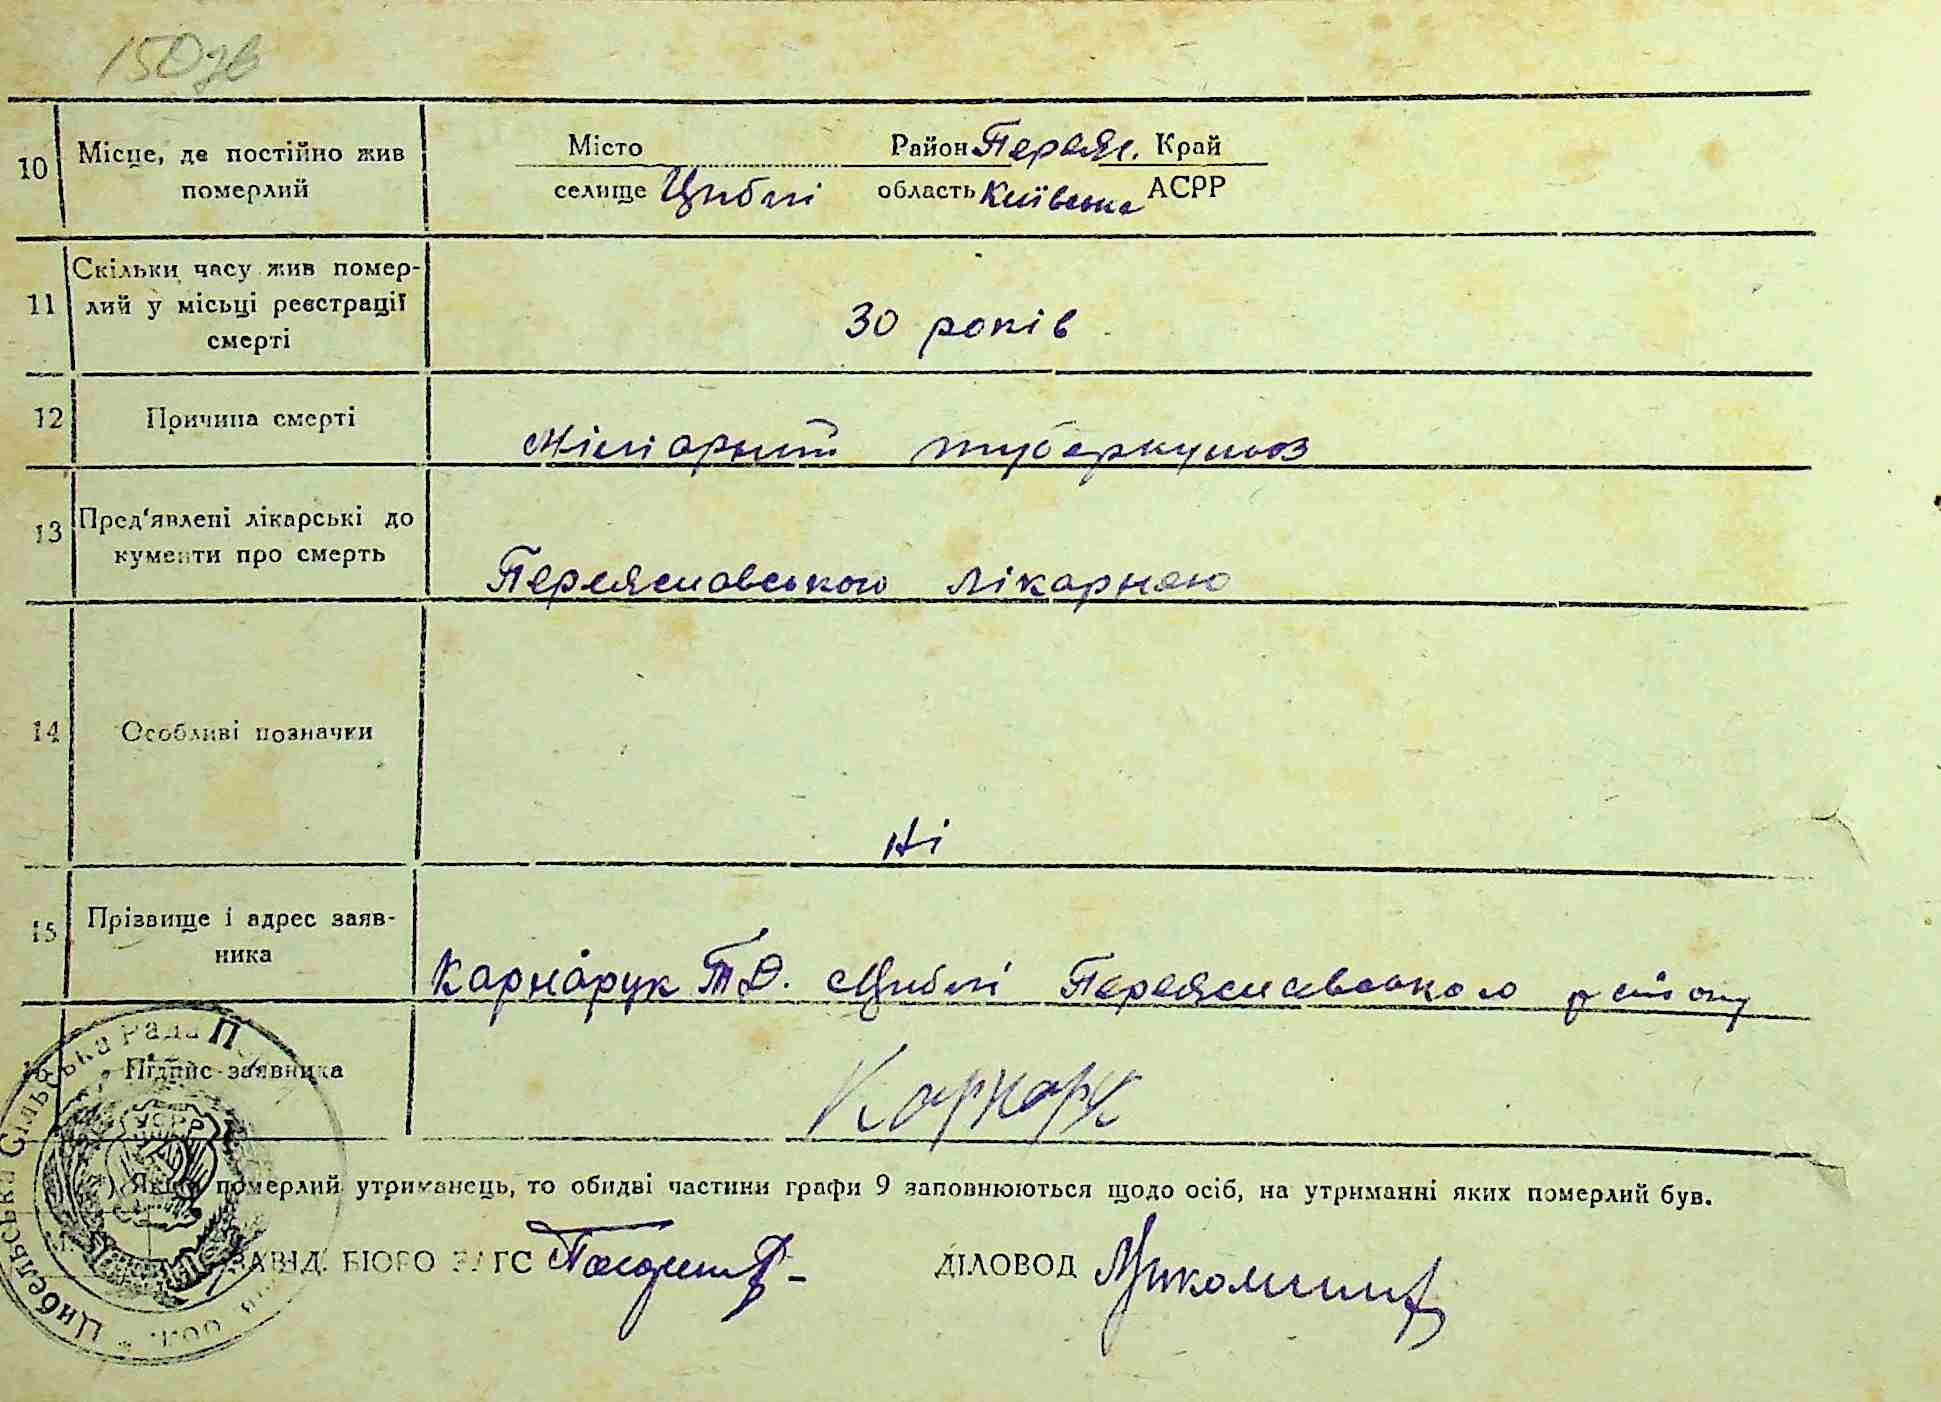 150зв
10 Місце, де постійно жив Місто Район Переясл. Край
померлий селище Циблі область Київська АСРР
11 Скільки часу жив помер-
лий у місьці реєстрації
смерті
30 років
12 Причина смерті
міліарний туберкульоз
13 Пред'явлені лікарські до
кументи про смерть
Переяславською лікарнею
14 Особливі позначки
Ні
15 Прізвище і адрес заяв-
ника
Карнарук Т.Д. Циблі Переяславського району
16 Підпис заявника
Карнарук
Якщо померлий утриманець, то обидві частини графи 9 заповнюються щодо осіб, на утриманні яких померлий був.
ЗАВІД. БЮРО ЗАГС ДІЛОВОД
Цибельська Сільська Рада П
УСРР